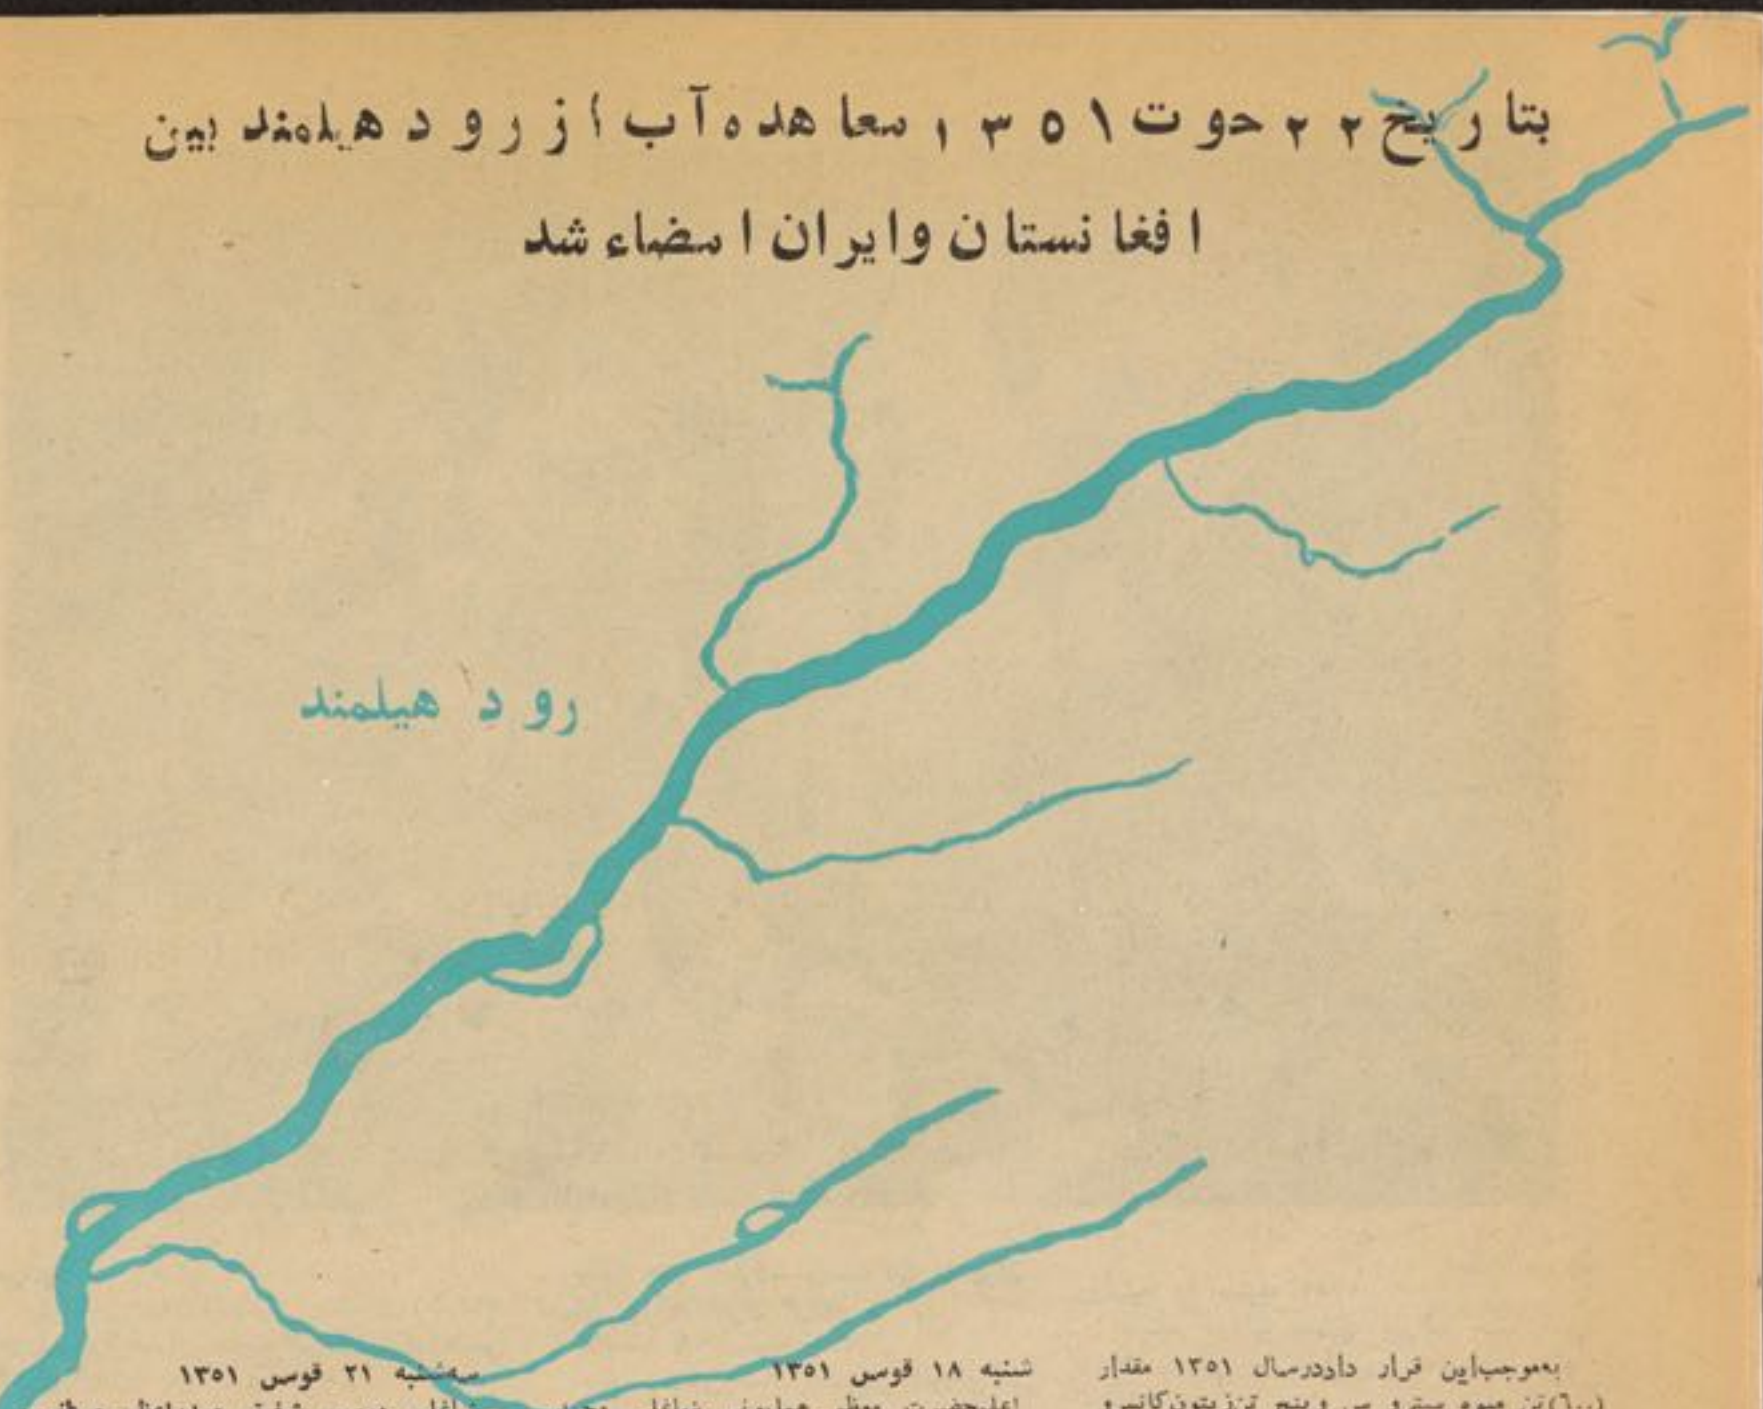 بتاریخ ۲۲ حوت ۱۳۵۱ معاهده آب از رود هیلمند بین
افغانستان وایران امضاء شد
رود هیلمند
بهموجب‌این قرار داددرسال ۱۳۵۱ مقدار
شنبه ۱۸ قوس ۱۳۵۱
سه‌شنبه ۲۱ قوس ۱۳۵۱